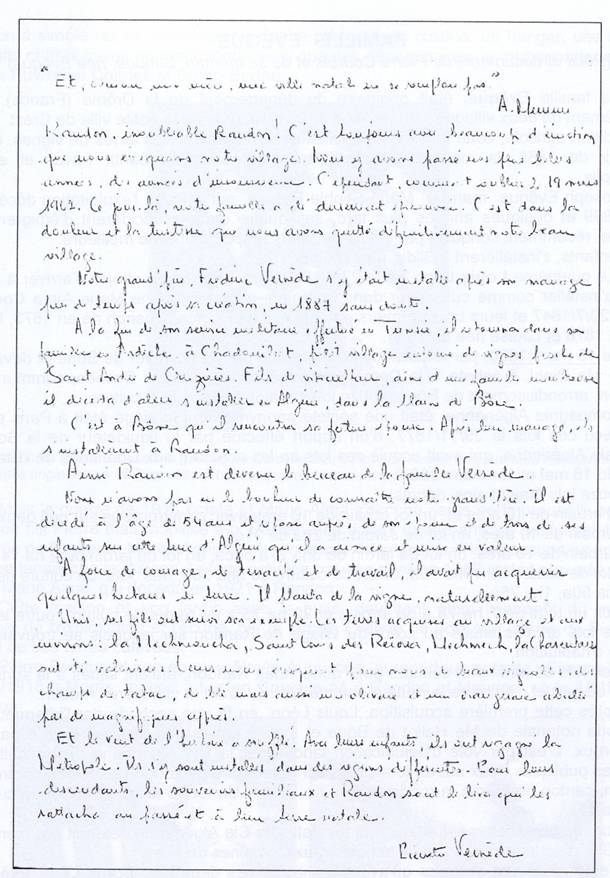 "Et, comme une mère, une ville natale ne se remplace pas."
A. Memmi
Randon, inoubliable Randon! C'est toujours avec beaucoup d'émotion
que nous évoquons notre village. Nous y avons passé nos plus belles
années, des années d'insouciance. Cependant comment oublier le 19 mars
1962. Ce jour là, notre famille a été durement éprouvée. C'est dans la
douleur et la tristesse que nous avons quitté définitivement notre beau
village.
Notre grand'père, Frédéric Vernède s'y était installé après son mariage
peu de temps après sa création, en 1887 sans doute.
A la fin de son service militaire effectué en Tunisie, il retourna dans sa
famille en Ardèche à Chadouillet, petit village entouré de vignes proche de
Saint André de Cruzières. Fils de viticulteur, ainé d'une famille nombreuse
il décida d'aller s'installer en Algérie, dans la plaine de Bône.
C'est à Bône qu'il rencontra sa future épouse. Après leur mariage, ils
s'installèrent à Randon.
Ainsi Randon est devenu le berceau de la famille Vernède.
Nous n'avons pas eu le bonheur de connaître notre grand'père. Il est
décédé à l'âge de 54 ans et repose auprès de son épouse et de trois de ses
enfants sur cette terre d'Algérie qu'il a aimée et mise en valeur.
A force de courage, de tenacité et de travail, il avait pu acquérir
quelques hectares de terre. Il planta de la vigne, naturellement.
Unis, ses fils ont suivi son exemple. Les terres acquises au village et aux
environs: la Mechmoucha, Saint Louis des Recova, Mechmech, la Charentaise
ont été valorisées. Leurs noms évoquent pour nous de beaux vignobles, des
champs de tabac, de blé mais aussi un oliveraie et une orangeraie abritée
par de magnifiques cyprès.
Et le vent de l'histoire a soufflé! Avec leurs enfants, ils ont regagné la
Métropole. Ils s'y sont installés dans des régions différentes. Pour leurs
descendants, les souvenirs familiaux et Randon sont le lien qui les
rattache au passé et à leur terre natale.
Vernède